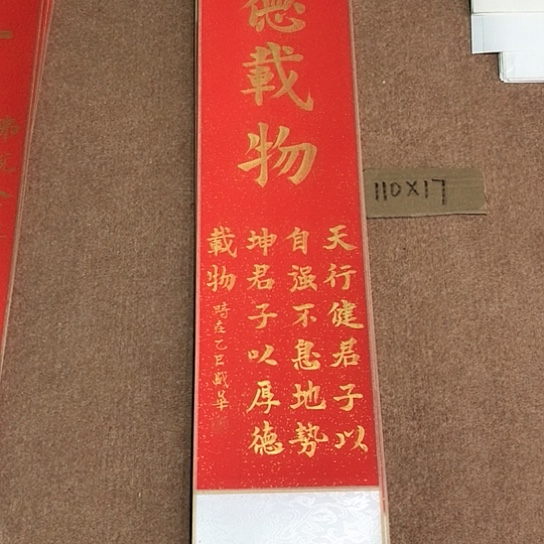 德載物
天行健君子以
自强不息地勢
坤君子以厚德
載物
時在乙巳
110X17